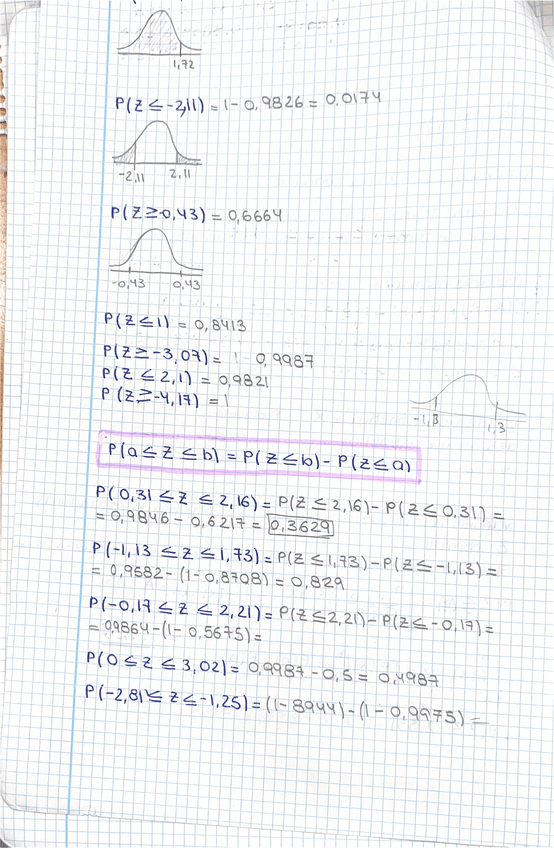 1,72
P(Z ≤ -2,11) = 1 - 0,9826 = 0,0174
-2,11 2,11
P(Z ≥ -0,43) = 0,6664
-0,43 0,43
P(Z ≤ 1) = 0,8413
P(Z ≥ -3,07) = 1 0,9987
P(Z ≤ 2,1) = 0,9821
P(Z ≥ -4,17) = 1
-1,3 1,3
P(a ≤ Z ≤ b) = P(Z ≤ b) - P(Z ≤ a)
P(0,31 ≤ Z ≤ 2,16) = P(Z ≤ 2,16) - P(Z ≤ 0,31) =
= 0,9846 - 0,6217 = 0,3629
P(-1,13 ≤ Z ≤ 1,73) = P(Z ≤ 1,73) - P(Z ≤ -1,13) =
= 0,9582 - (1 - 0,8708) = 0,829
P(-0,17 ≤ Z ≤ 2,21) = P(Z ≤ 2,21) - P(Z ≤ -0,17) =
= 0,9864 - (1 - 0,5675) =
P(0 ≤ Z ≤ 3,02) = 0,9987 - 0,5 = 0,4987
P(-2,81 ≤ Z ≤ -1,25) = (1 - 8944) - (1 - 0,9975) =